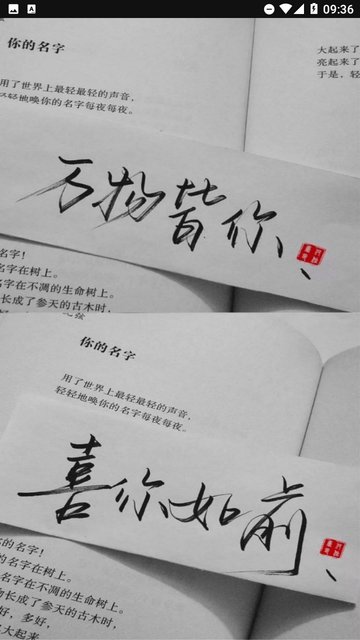 09:36
你的名字
用了世界上最轻最轻的声音，
轻轻地唤你的名字每夜每夜。
大起来了
亮起来了
于是，轻
万物皆你、
名字！
名字在树上。
名字在不凋的生命树上。
长成了参天的古木时，
你的名字
用了世界上最轻最轻的声音，
轻轻地唤你的名字每夜每夜。
喜你如前、
的名字！
的名字在树上。
名字在不凋的生命树上。
长成了参天的古木时，
好，多好，
大起来